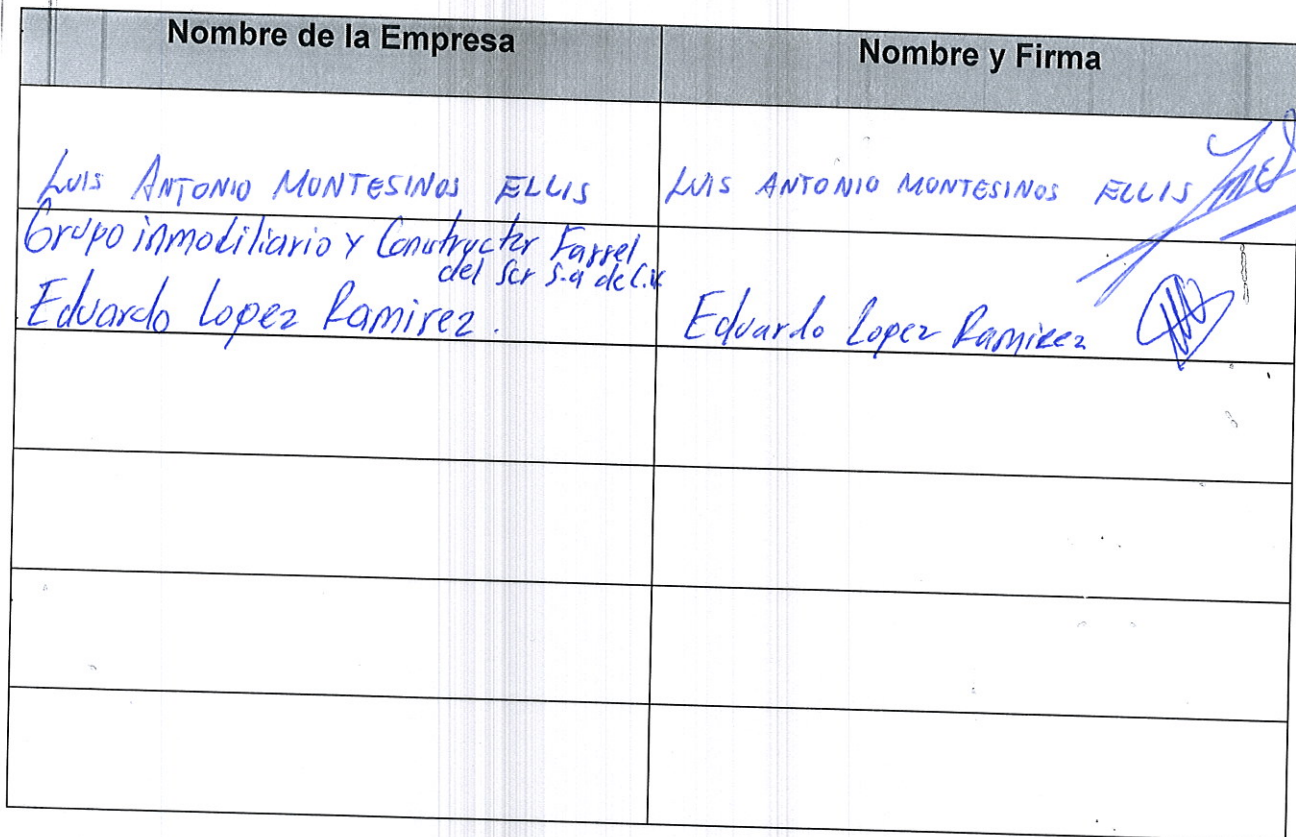 Nombre de la Empresa
Nombre y Firma
LUIS ANTONIO MONTESINOS ELLIS
LUIS ANTONIO MONTESINOS ELLIS
Grupo inmobiliario y Constructor Farrel
del Sur S.a de C.v
Eduardo Lopez Ramirez.
Eduardo Lopez Ramirez